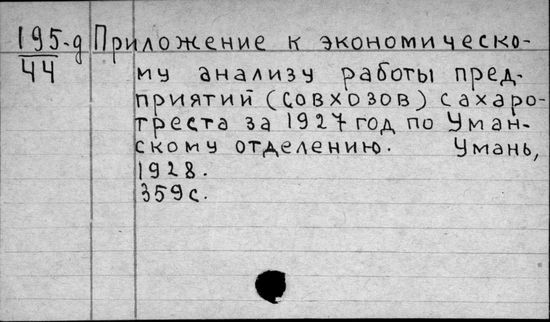 195-д Приложение к экономическо-
44 му анализу работы пред-
приятий (совхозов) сахаро-
треста за 1927 год по Уман-
скому отделению. Умань,
1928.
359с.